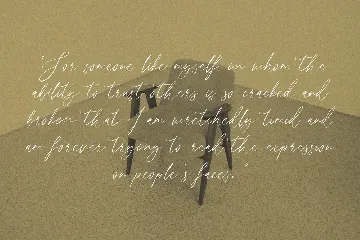 "For someone like myself in whom the
ability to trust others is so cracked and
broken that I am wretchedly timid and
am forever trying to read the expression
on people's faces."